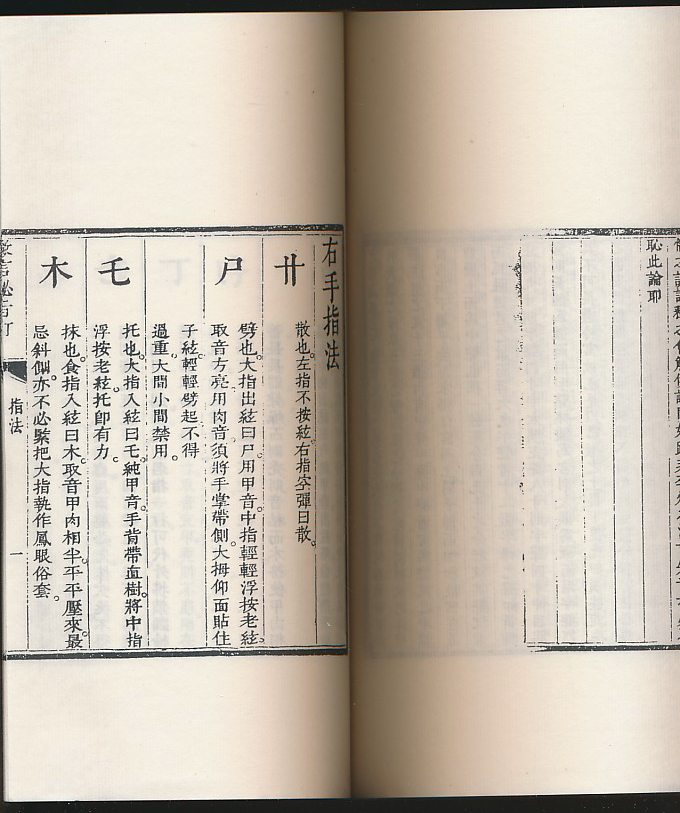 恥此論耶
右手指法
廾
散也。左指不按絃。右指空彈曰散。
尸
劈也。大指出絃曰尸。用甲音。中指輕輕浮按老絃。
取音方亮。用肉音。須將手掌帶側。大拇仰面貼住
子絃。輕輕劈起。不得
過重。大間小間禁用。
乇
托也。大指入絃曰乇。純甲音。手背帶直樹。將中指
浮按老絃。托卽有力。
木
抹也。食指入絃曰木。取音甲肉相半。平平壓來。最
忌斜側。亦不必緊把大指執作鳳眼俗套。
指法
一